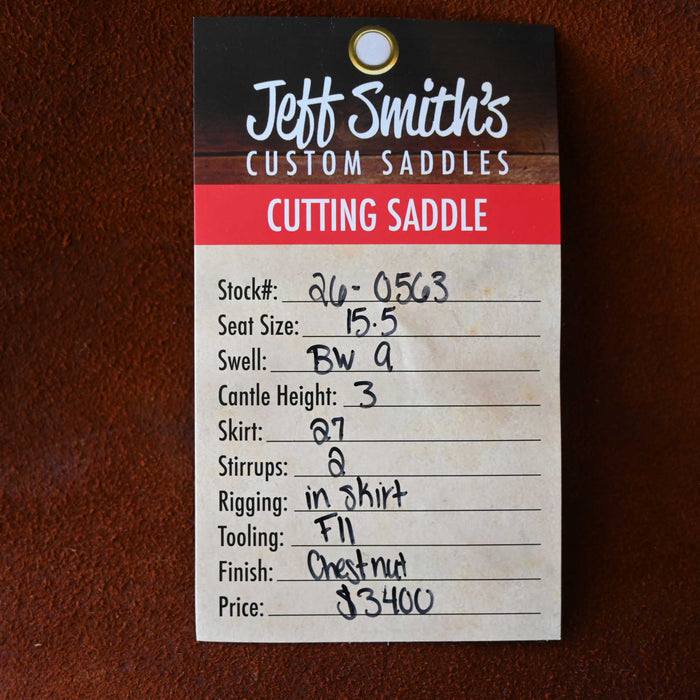 Jeff Smith's
CUSTOM SADDLES
CUTTING SADDLE
Stock#: 26-0563
Seat Size: 15.5
Swell: BW 9
Cantle Height: 3
Skirt: 27
Stirrups: 2
Rigging: in skirt
Tooling: F11
Finish: Chestnut
Price: $3400